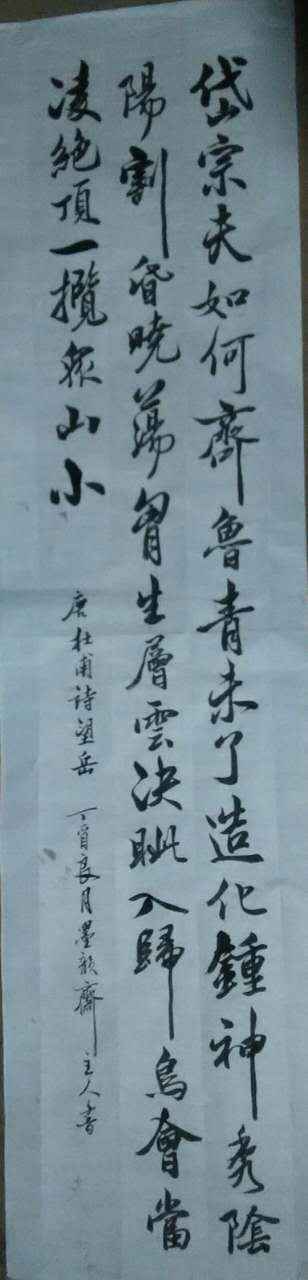 岱宗夫如何齊魯青未了造化鍾神秀陰
陽割昏曉蕩胷生層雲決眦入歸鳥會當
凌絶頂一攬衆山小
唐杜甫詩望岳 丁酉良月墨韵齋主人書